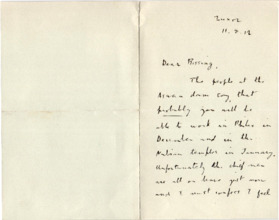 11.8.12
Dear Pissing,
The people at the
Aswan dam say that
probably you will be
able to work in Philae in
December and in the
Nubian temples in January.
Unfortunately the chief men
are all on leave just now
and I must confess I feel